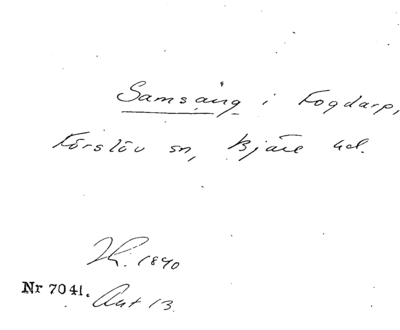 Samsäng i Fogdarp,
Förslöv sn, Bjäre hd.
1890
Nr 7041.
Ant 13